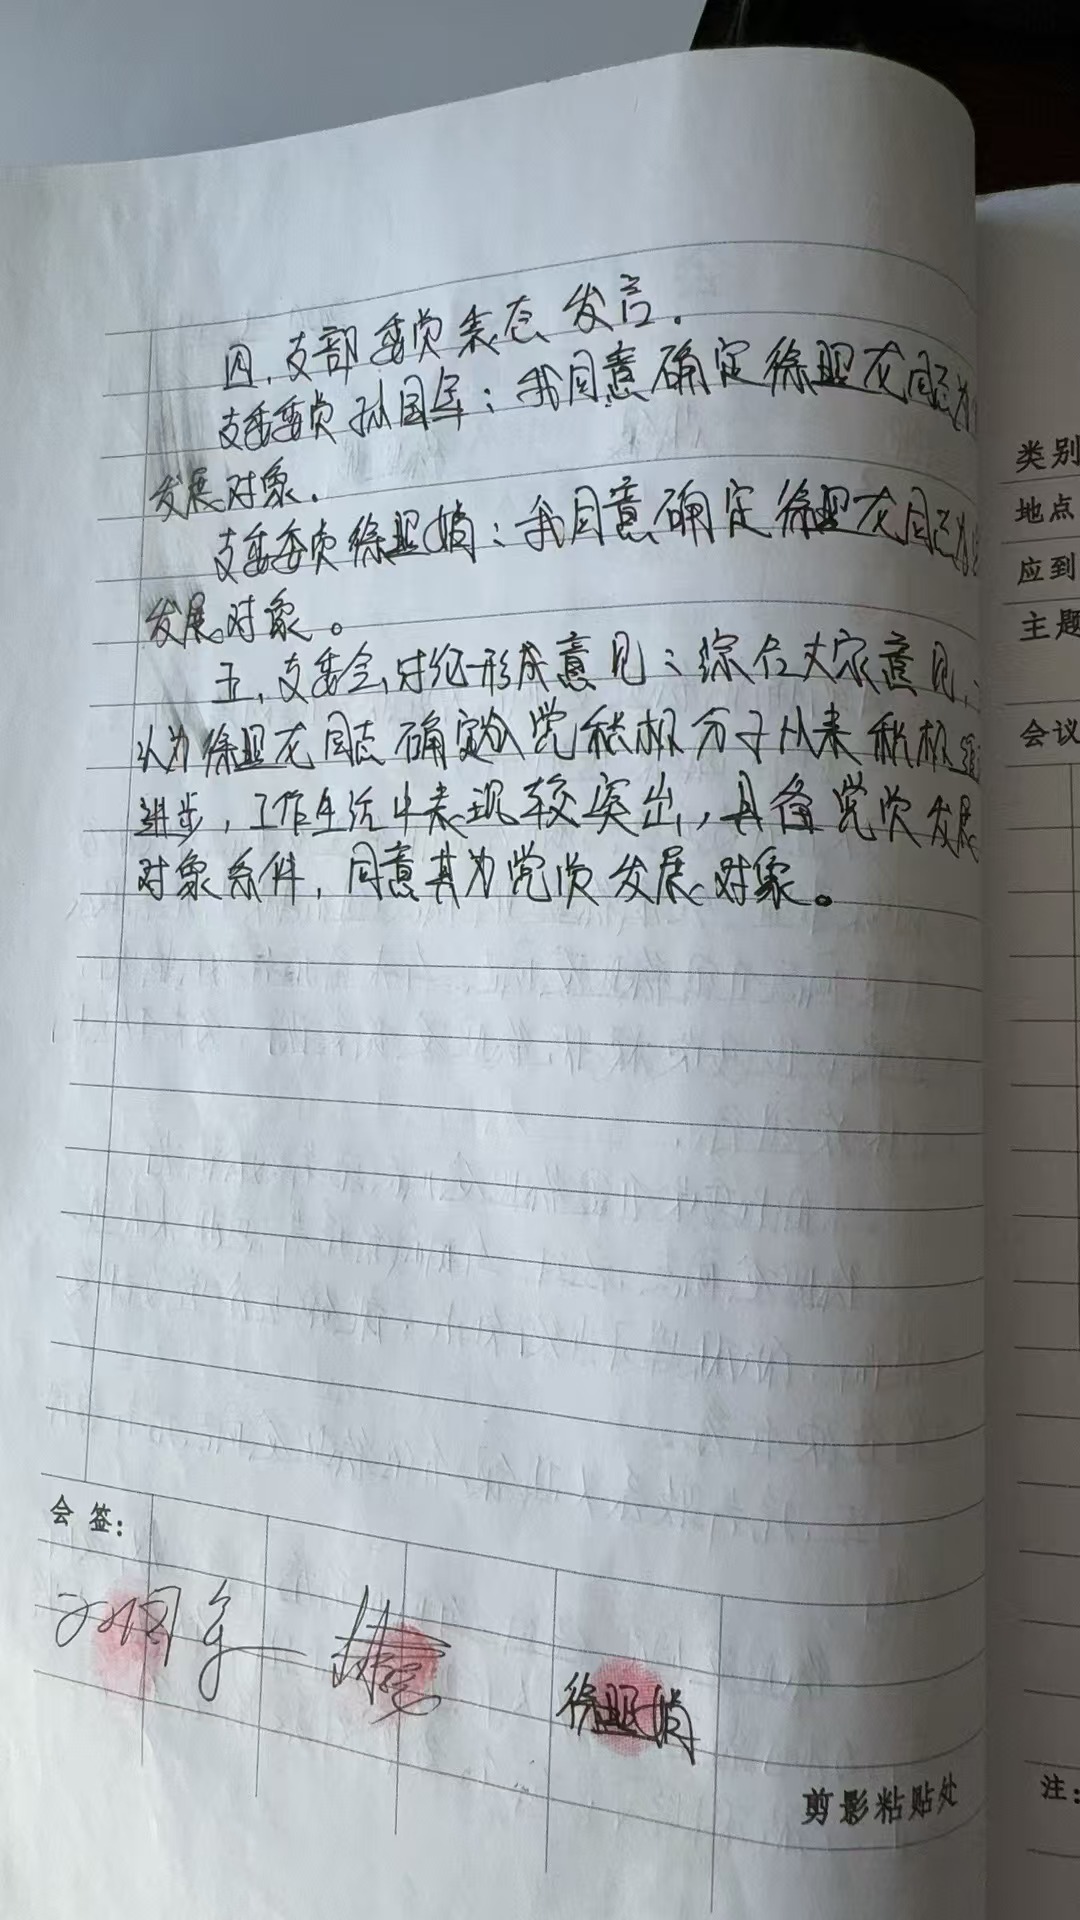 四、支部委员表态发言.
支委委员孙国军：我同意确定徐昭龙同志为
发展对象.
支委委员徐昭娟：我同意确定徐昭龙同志为
发展对象。
五、支委会讨论形成意见：综合大家意见,
认为徐昭龙同志确定为入党积极分子以来积极
进步，工作生活中表现较突出，具备党员发展
对象条件，同意其为党员发展对象。
会签：
孙国军
徐昭娟
剪影粘贴处
类别
地点
应到
主题
会议
注：